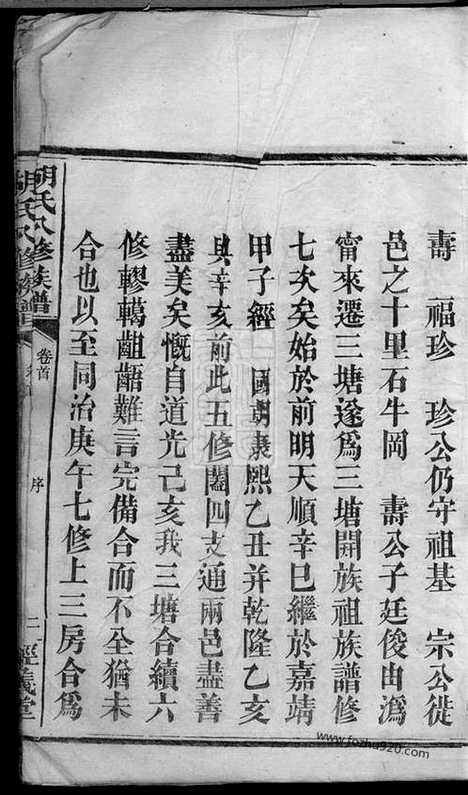 壽　福珍　珍公仍守祖基　宗公徙
邑之十里石牛岡　壽公子廷俊由潙
甯來遷三塘遂爲三塘開族祖族譜修
七次矣始於前明天順辛巳繼於嘉靖
甲子經　國朝康熙乙丑并乾隆乙亥
與辛亥前此五修闔四支通兩邑盡善
盡美矣慨自道光己亥我三塘合續六
修轇轕齟齬難言完備合而不全猶未
合也以至同治庚午七修上三房合爲
胡氏八修族譜
卷首
序
二
經義堂
www.fozhu920.com